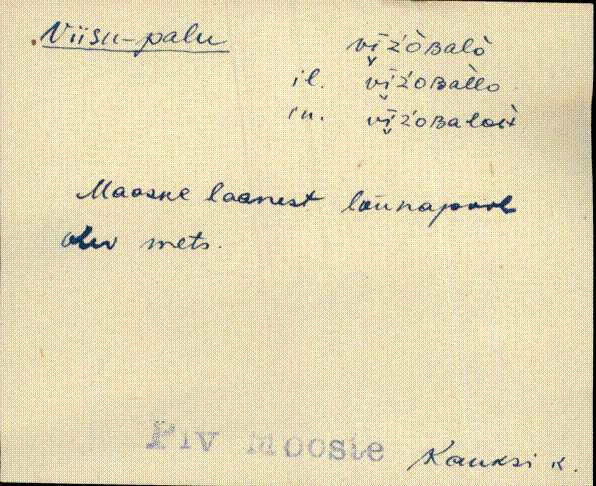 Viisu-palu vi̮īźòʙalò
il. vīźoʙal̀lo
in. vīźoʙaloit
Mooske laanest lõunapool
olev mets.
Plv Mooste Kauksi k.